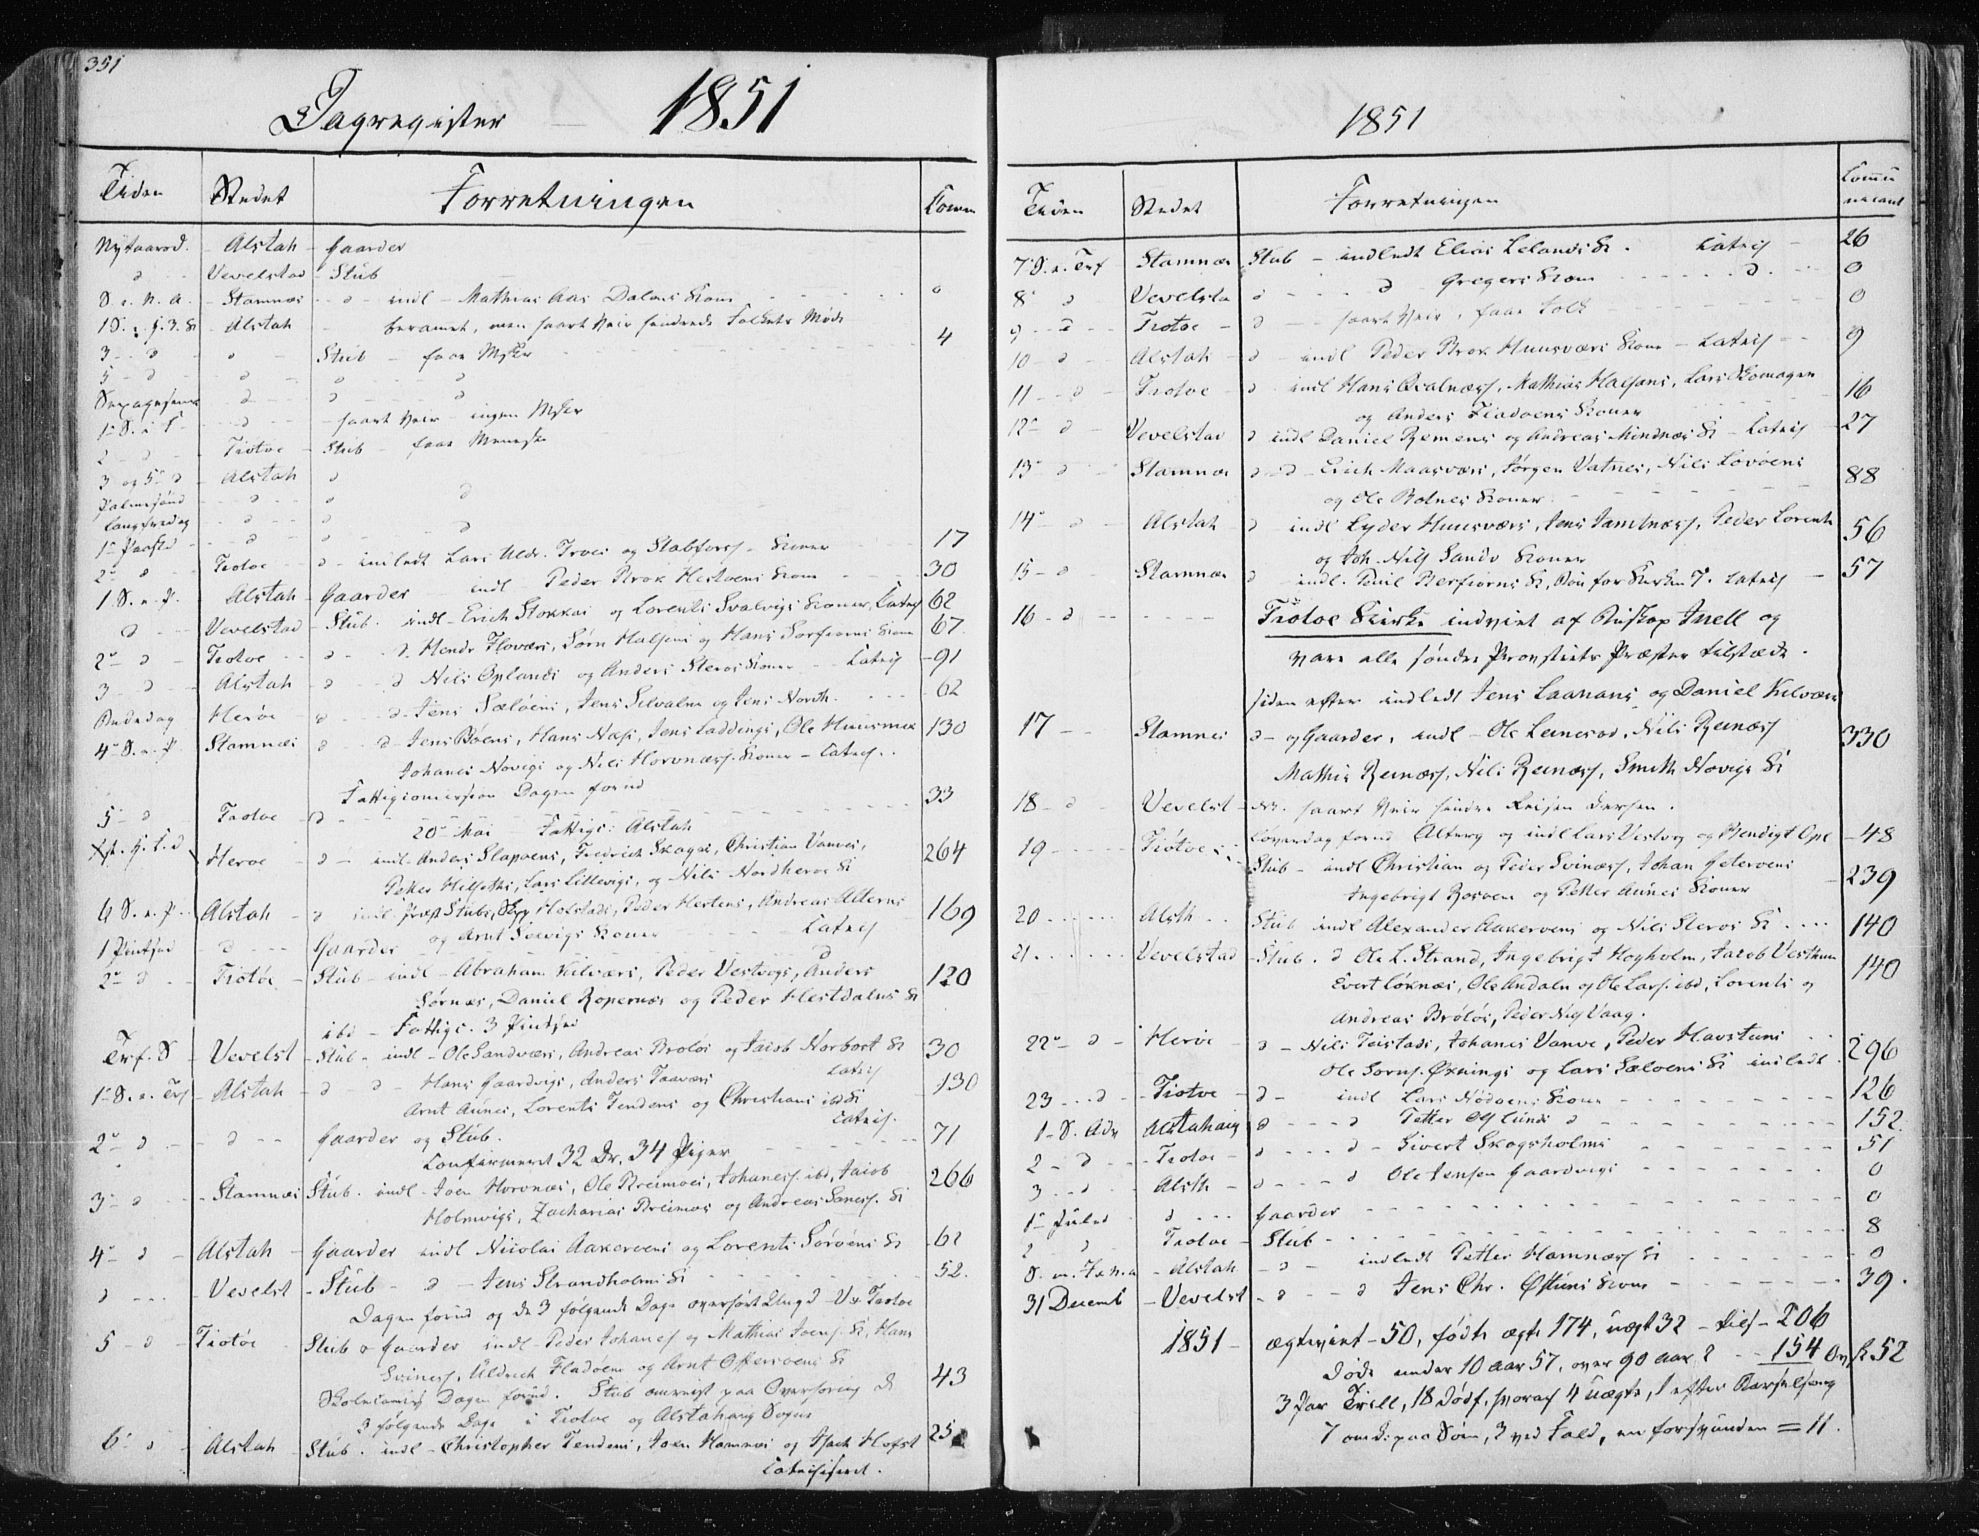 351
Dagregister — 1851
Tiden Stedet Forretningen Comm
Nytaarsd. - Alstah - Gaarder
d - Vevelstad - Stub
S. e. N. A. - Stamnæs - d - indl - Mathias Aas Dalens Kone 0
1 S. e. H. 3. K - Alstah - beramet, men haardt Veir hindrede Folkets Møde
3 - d d Stub - faae Msker 4
5 - d - d - d d
Sexagesima d d d
1 S. i F. - d - haardt Veir - ingen Msker
2 - d - Tiotøe - Stub - faae Mennesker
3 og 5 d - Alstah d
Palmesønd - d - d d
Langfredag - d - d
1 Paaske - d - d d
2 d - Tiotøe - d - indledt Lars Aldr. Troes og Stabfors - Koner 17
1 S. e. P. Alstah - Gaarder indl - Peder Brok Hestøens Kone 30
d - Vevelstad - Stub. indl - Erich Stokkas og Lorents Svalvigs Koner, Catech 62
2 d - Tiotøe - d - d. Hendr Floværs, Sørn Halsens og Hans Torfiorns Kone 67
3 - d - Alstah - d - d Nils Oplands og Anders Sterøs Koner - Catech - 91
Bededag Herøe - d - d - Jens Sæløens, Jens Selvalns og Jens North. 62
4 S. e. P. Stamnæs d - d - Jens Bøens, Hans Næss, Jens Laddings, Ole Huusmoe 130
Johanes Novigs og Nils Horvnæss. Koner - Catech.
Fattigcomission Dagen forud
5 - d - Tiotøe - d - 33
20 Mai - Fattigc: Alstah
Chr. H. F. d Herøe - d - indl - Anders Slapøens, Fredrich Skagas, Christian Vanves, 264
Petter Hilseths, Lars Littevigs, og Nils Nordherøs K
6 S. e. P. - Alstah - d indl. Præst Stubs, Hofstads, Peder Hestens, Andreas Alterns 169
og Arnt Selvigs Koner Catech
1 Pintsed - d - Gaarder d
2 d - Tiotøe - Stub - indl - Abraham Kilværs, Peder Vestvogs, Anders 120
Sørnæs, Daniel Ropernæs og Peder Hestdalens K
ibd - Fattigc. 3 Pintsed
Trf. S - Vevelst - Stub - indl - Ole Sandværs, Andreas Broløs og Jacob Norbost K 30
Catech
1 S. e. Trf - Alstah - d d - Hans Gaardvigs, Anders Taaværs 130
Arnt Aunes, Lorents Tendens og Christians ibd K
Catech.
2 d - d - Gaarder og Stub. 71
Confirmeret 32 Dr, 34 Piger
3 - d - Stamnæs Stub. indl - Joen Horvnæs, Ole Breimoes, Johaness. ibd, Jacob 266
Holmvigs, Zacharias Breimos og Andreas Saness. K
4 d - Alstah - Gaarder indl Nicolai Aakervens og Lorents Sørøens K 62
d - Vevelst - Stub - d - Jens Strandholms K 52.
Dagen forud og de 3 følgende Dage overhørt Ungd - Vv. Tiotøe
5 - d - Tiotøe Stub o Gaarder indl - Peder Johaness og Mathias Joens. K, Hans
Sviness, Uldrich Fladøens og Arnt Offersøens K 43
Skolecomiss Dagen forud. Stub omreist paa Overhøring d
3 følgende Dage i Tiotøe og Alstahaug Sogne
6 d Alstah - Stub. indl - Christopher Tendens, Joen Hamnøs og Isach Hofst 25
Catechiseret.
1851
Tiden Stedet Forretningen Commu
nicant
7 S. e. Trf Stamnæs Stub - indledt Elias Lelands K. Catech - 26
8 d Vevelsta d - d Gregers Kone d. 0
9 - d - Tiotøe - d - haardt Veir, faae Folk 0
10 - d - Alstah - d - indl Peder Brok Huusværs Kone - Catech - 9
11 - d - Tiotøe - d - indl Hans Qvalnæss, Mathias Halsens, Lars Skomager 16
og Anders Fladøens Koner
12 - d - Vevelstad d indl Daniel Remens og Andreas Mindnæs K - Catech - 27
13 d - Stamnæs d - d - Erich Maasværs, Jørgen Vatnes, Nils Lovøens 88
og Ole Botnes Koner
14 - d - Alstah d indl Eyder Huusværs, Jens Jamtnæss, Peder Lorents 56
og Joh. Nils Sandv Koner
15 - d - Stamnæs d - indl. Poul Berfiorns K, for Kirken 7. Catech - 57
16 - d - Tiotøe Kirke indviet af Biskop Juell og
vare alle søndre Provstiets Præster tilstæde.
siden efter indledt Jens Laanans og Daniel Kilværs
17 - Stamnes d - og Gaarder, indl - Ole Leinesod, Nils Reinæss 330
Mathis Reinæss, Nils Reinæss, Smith Novigs K
18 - d - Vevelst - NB. haardt Veir hindre Reisen dersen.
19 - Tiotøe - Løverdag forud Alterg og indl Lars Vestvog og Bendigt Opl - 48
Stub - indl Christian og Peder Svinæss, Johan Geterøens 239
Ingebrigt Rosøen og Petter Aunes Koner
20 - Alsth - Stub indl Alexander Aakervens og Nils Sterøs K 140
21 - Vevelstad - Stub. d Ole L. Strand, Ingebrigt Høgholm, Jacob Vesthus 140
Evert Løknæs, Ole Andaln og Ole Lars. ibd, Lorents og
Andreas Brøløs, Peder Niels Vaag.
22 - d - Herøe d - Nils Teistads, Johanes Vanve, Peder Havsteens 296
Ole Sorns. Øxnings og Lars Sæløens K indledt
23 - d - Tiotøe - d - indl Lars Nødøens Kone 126
1 - S. Adv Alstahaug d - d Petter Østlunds d 152.
2 - d - Tiotøe - d - d - Sivert Skogsholms 51
3 - d Alsth - d - d Ole Jensen Gaardvigs 0
1 Juled d - Gaarder 0
2 d Tiotøe - Stub 8
S. m. J. & N. A - Alstah - d - indledt Petter Hamnæss K 0
31 Decemb - Vevelst - d - d Jens Chr. Østuns Kone 39.
1851 - ægteviet - 50, fødte ægte 174, uægt 32 - tils - 206
døde under 10 aar 57, over 90 aar 2 - 154 Ov 52
3 Par Trill, 18 dødf, hvoraf 4 uægte, 1 efter Barselseng
7 omk: paa Søen, 3 ved Fald, en forsvunden = 11.